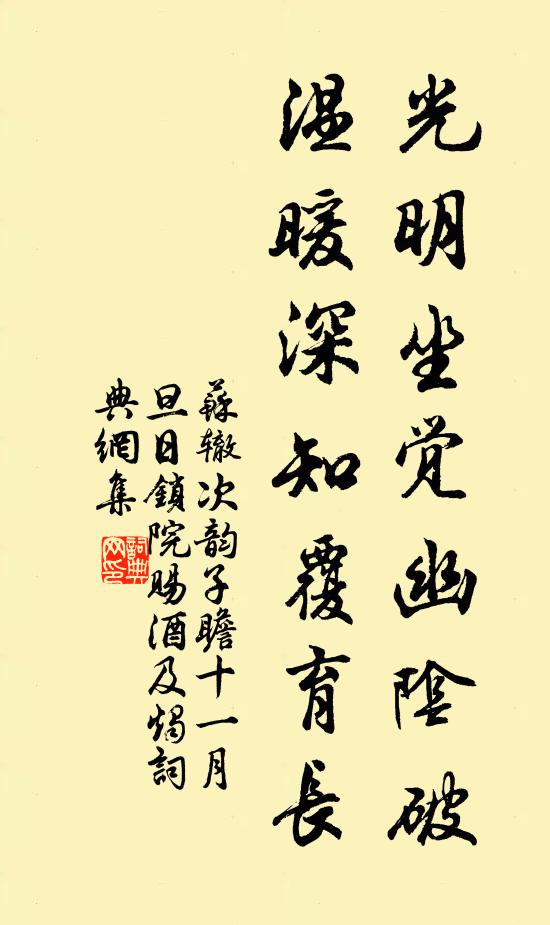 光明坐觉幽陰破
温暖深知覆育長
蘇辙次韵子瞻十一月
旦日鎖院賜酒及燭詞
典網集
詞典
网印